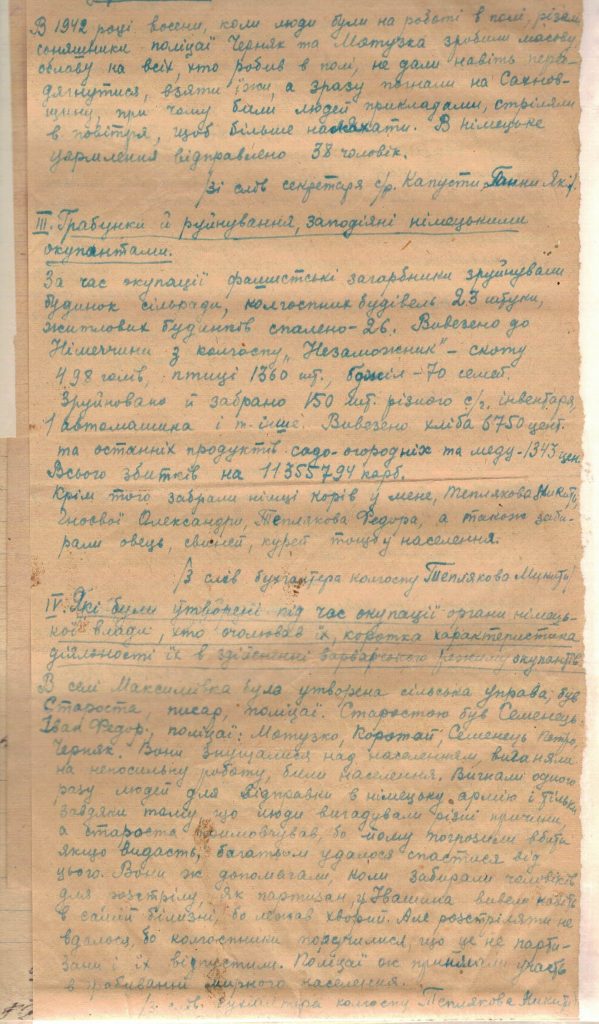 В 1942 році восени, коли люди були на роботі в полі, різали
соняшники, поліцаї Черняк та Мотузка зробили масову
облаву на всіх, хто робив в полі, не дали навіть пере-
дягнутися, взяти їжи, а зразу погнали на Сахнов-
щину, при чому били людей прикладами, стріляли
в повітря, щоб більше налякати. В німецьке
відправлено 38 чоловік.
/зі слів секретаря с/р. Капусти Ганни Як/.
III. Грабунки й руйнування, заподіяні німецькими
окупантами.
За час окупації фашистські загарбники зруйнували
будинок сільради, колгоспних будівель 23 штуки,
житлових будинків спалено - 26. Вивезено до
Німеччини з колгоспу „Незаможник" - скоту
498 голів, птиці 1360 шт., бджіл - 70 семей.
Зруйновано й забрано 150 шт. різного с/г. інвентаря,
1 автомашина і т. інше. Вивезено хліба 6750 цент.
та останніх продуктів садо-огородніх та меду - 1343 цен.
Всього збитків на 11355794 карб.
Крім того забрали німці корів у мене, Теплякова Микити,
Олександри, Теплякова Федора, а також заби-
рали овець, свиней, курей тощо у населення.
/З слів бухгалтера колгоспу Теплякова Микити/
IV. Які були утворені під час окупації органи німець-
кої влади, хто очолював їх, коротка характеристика
діяльності їх в здійсненні варварського режиму окупантів
В селі Максимівка була утворена сільська управа, був
Староста, писар, поліцаї. Старостою був Семенець
Іван Федор., поліцаї: Мотузко, Коротай, Семенець Петро,
Черняк. Вони знущалися над населенням, виганяли
на непосильну роботу, били населення. Вигнали одного
разу людей для відправки в німецьку армію і тільки
завдяки тому, що люди вигадували різні причини,
а староста примовчував, бо йому погрозили вбити
якщо видасть, багатьом удалося спастися від
цього. Вони ж допомагали, коли забирали чоловіків
для розстрілу, як партизан, у Івашина вивели
в самій білизні, бо лежав хворий. Але розстріляти не
вдалося, бо колгоспники поручилися, що це не парти-
зани і їх відпустили. Поліцаї ж приймали участь
в грабуванні мирного населення.
/з слів бухгалтера колгоспу Теплякова Микити/